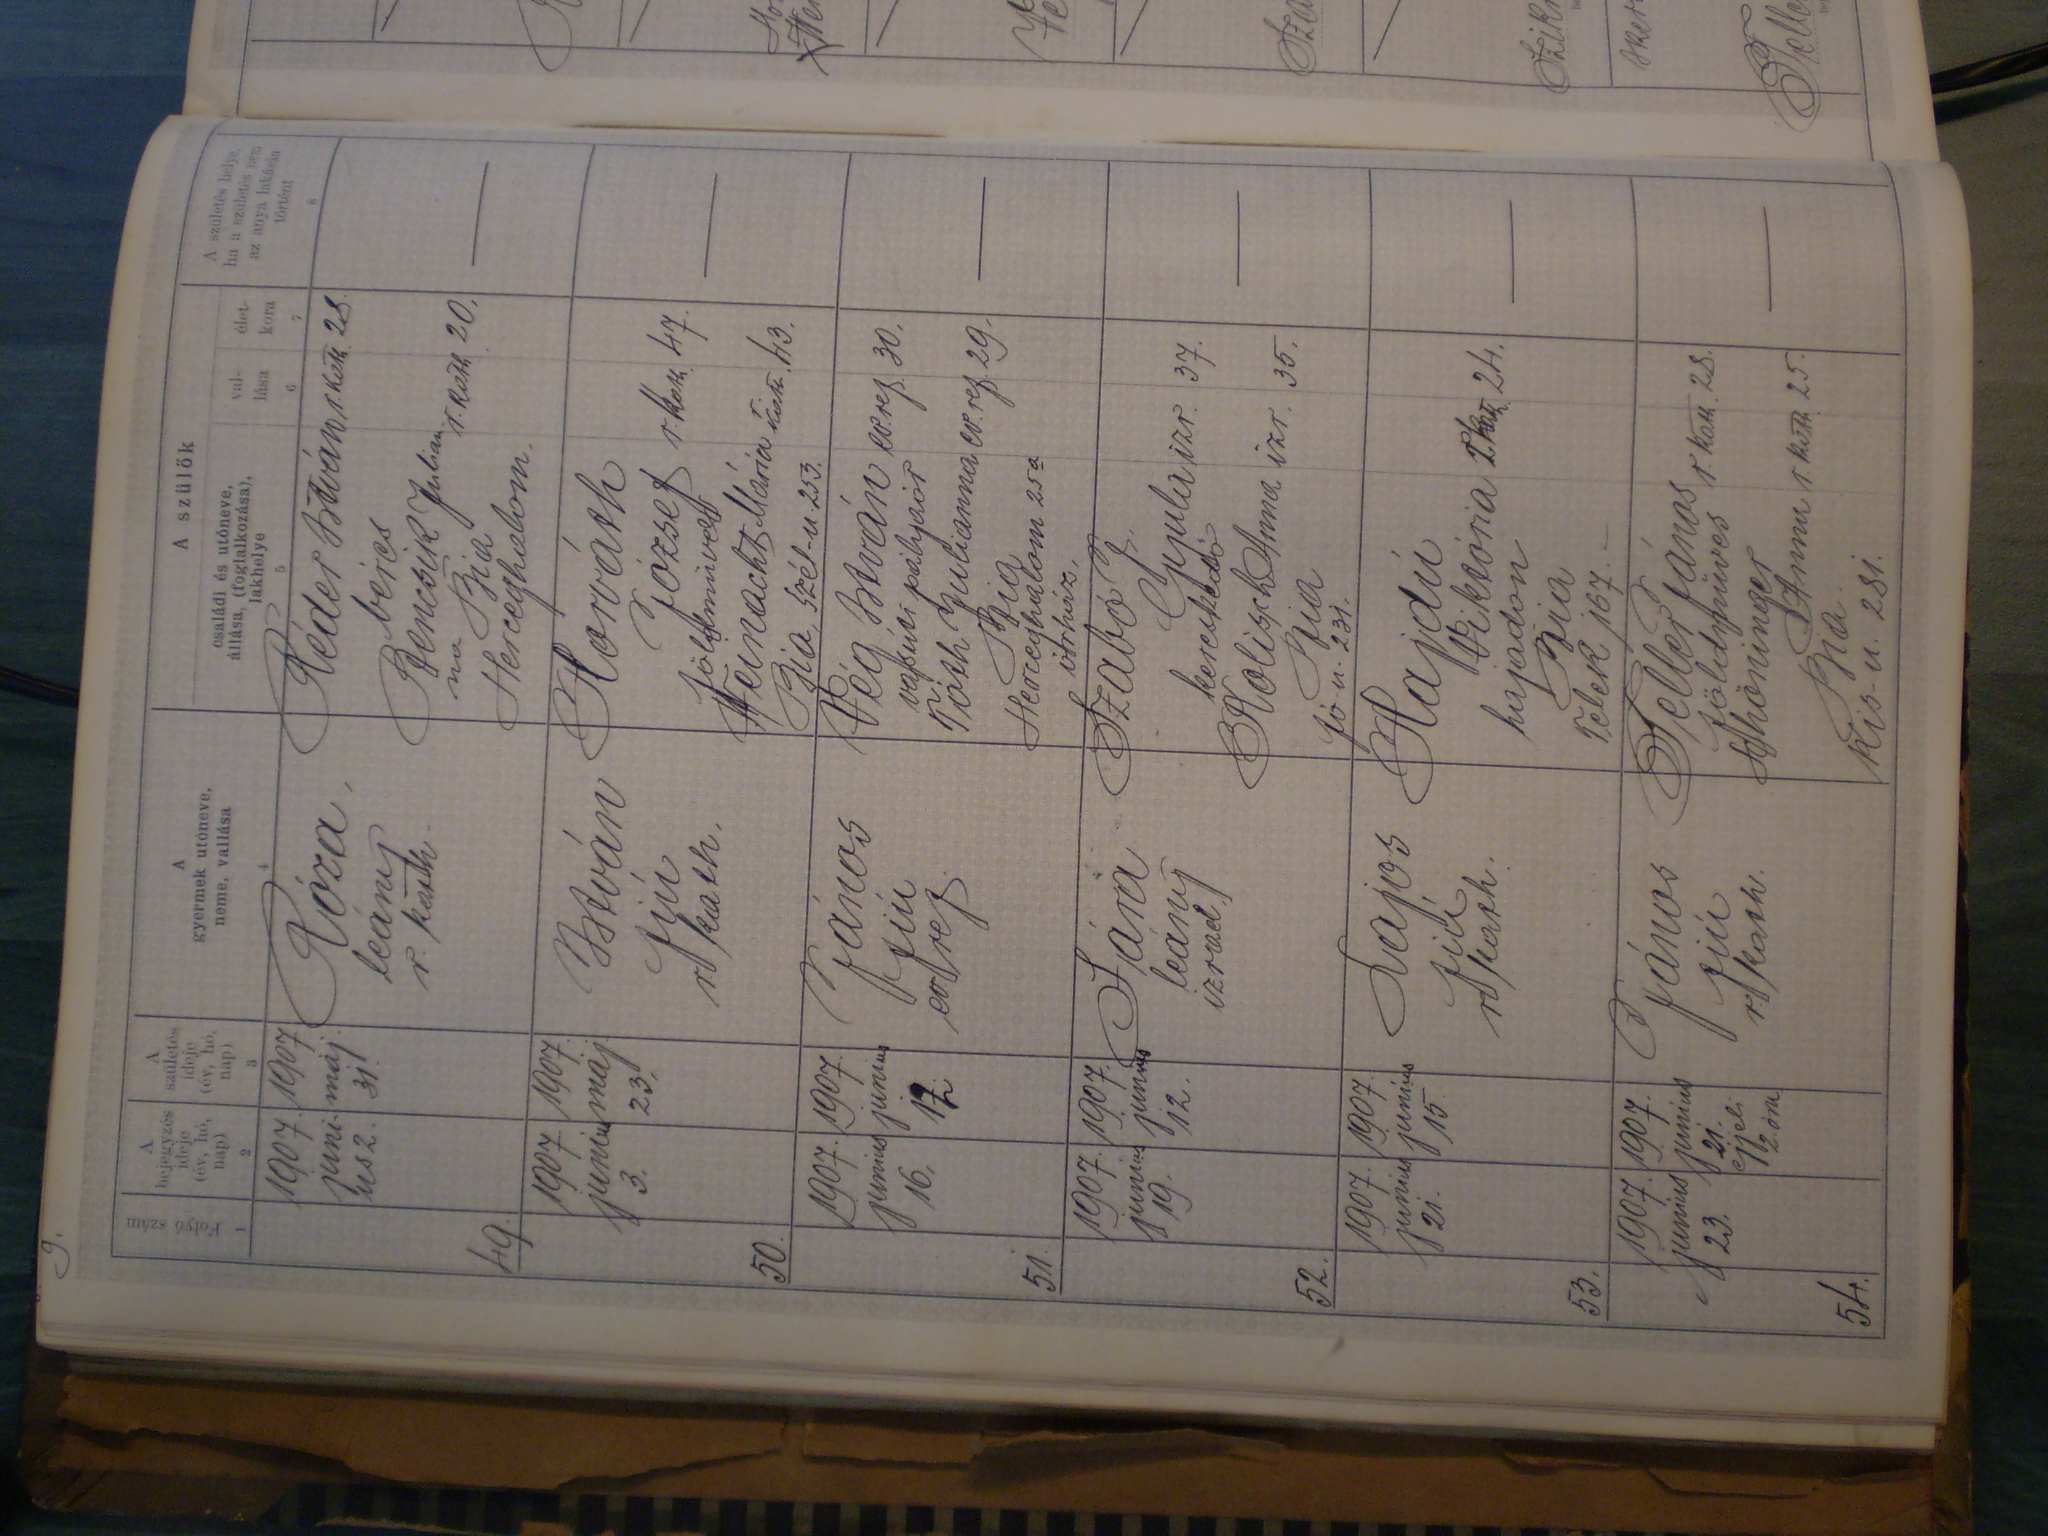 9.
Folyó szám
A bejegyzés ideje (év, hó, nap)
A születés ideje (év, hó, nap)
A gyermek utóneve, neme, vallása
A szülők
családi és utóneve, állása, (foglalkozása), lakhelye
val-lása
élet-kora
A születés helye, ha a születés nem az anya lakásán történt
1 2 3 4 5 6 7 8
49.
1907. juni-us 2.
1907 máj. 31.
Róza.
leány
r. kath.
Réder István r. kath. 28.
béres
Bencsik Julian-na r. kath. 20.
Bia
Herceghalom.
50.
1907. junius 3.
1907. máj. 23.
István
fiú
r. kath.
Horváth
József r. kath. 47.
földmives
Weinacht Mária r. kath. 43.
Bia Szél-u. 253.
51.
1907. junius 16.
1907. junius 12.
János
fiú
ev. ref.
Vég István ev. ref. 30.
vasúti pályaőr
Tóth Julianna ev. ref. 29.
Bia
Herceghalom 25a
őrház.
52.
1907. junius 19.
1907. junius 12.
Sára
leány
izrael.
Szabó
Gyula izr. 37.
kereskedő
Bolisch Anna izr. 35.
Bia
Fő-u. 231.
53.
1907. junius 21.
1907. junius 15.
Lajos
fiú
r. kath.
Hajdú
Viktória r. kath. 24.
hajadon
Bia
Telek 167.
54.
1907. junius 23.
1907. junius 21. éjjeli 12 óra
János
fiú
r. kath.
Feller János r. kath. 28.
földmüves
Schöninger
Anna r. kath. 25.
Bia.
Kis-u. 281.